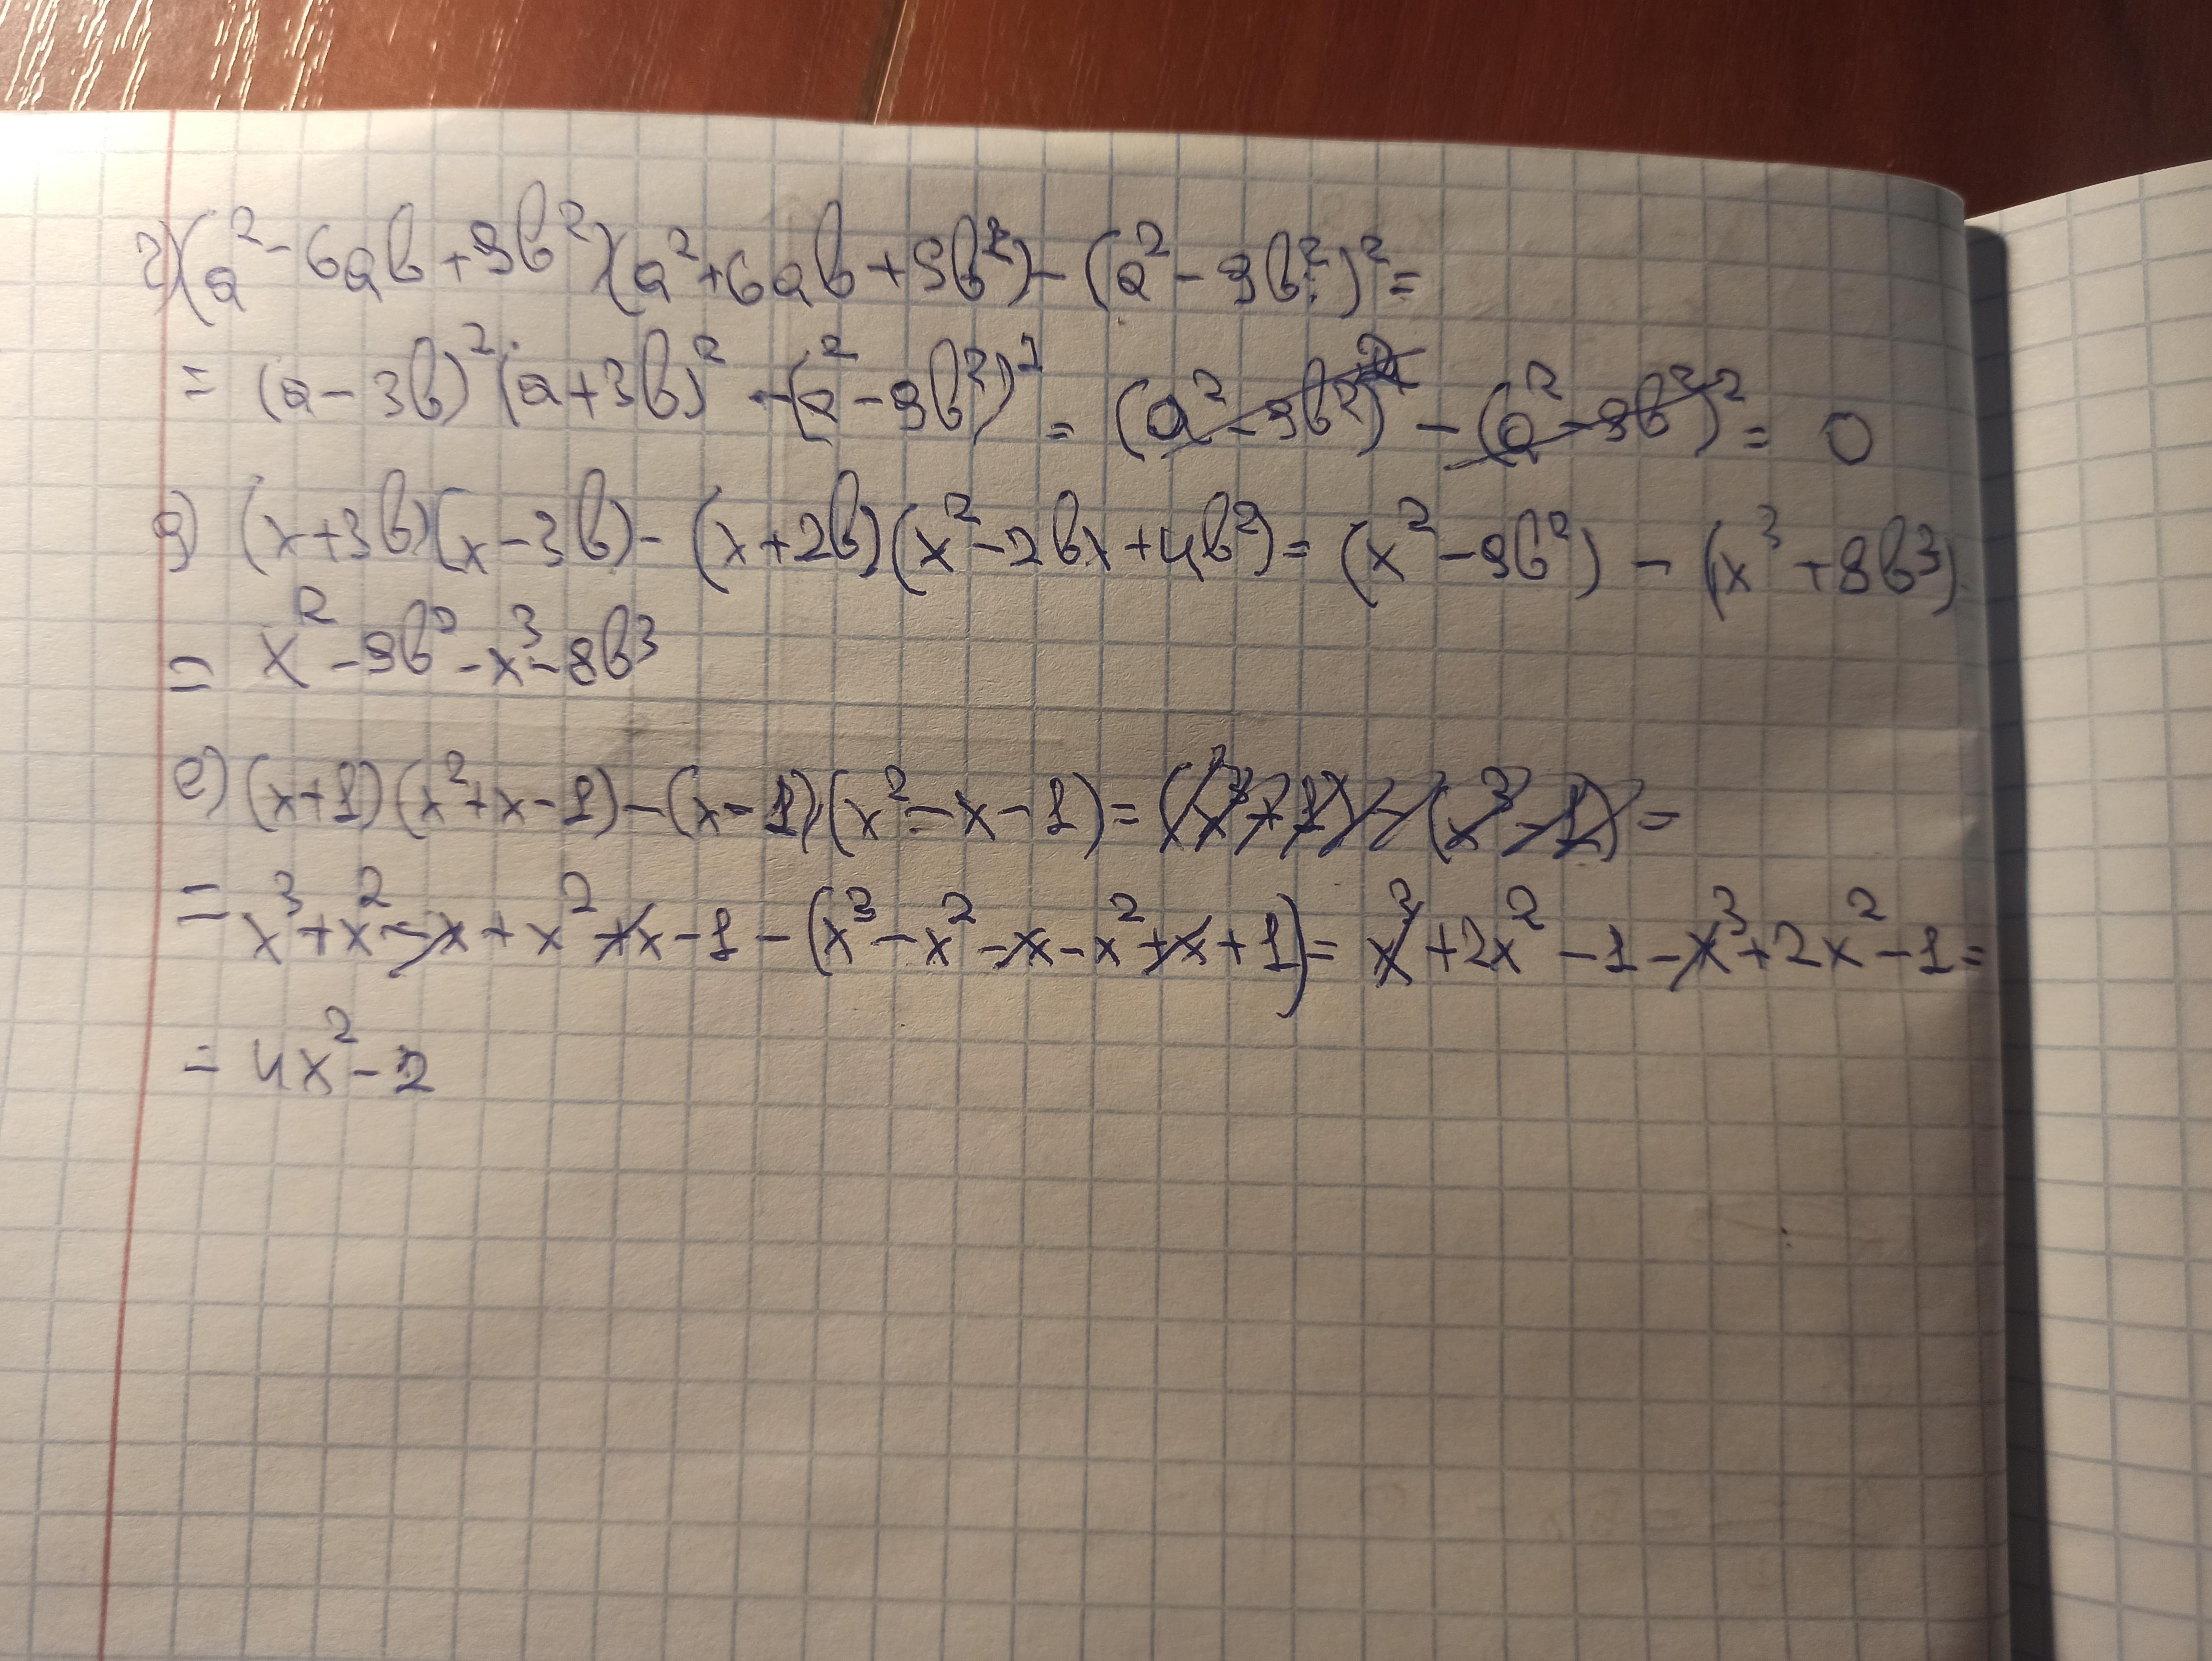 г) (a² - 6ab + 9b²)(a² + 6ab + 9b²) - (a² - 9b²)² =
= (a - 3b)² · (a + 3b)² - (a² - 9b²)² = (a² - 9b²)² - (a² - 9b²)² = 0
д) (x + 3b)(x - 3b) - (x + 2b)(x² - 2bx + 4b²) = (x² - 9b²) - (x³ + 8b³)
= x² - 9b² - x³ - 8b³
е) (x + 1)(x² + x - 1) - (x - 1)(x² - x - 1) = (x³ + 1) - (x³ - 1) =
= x³ + x² - x + x² + x - 1 - (x³ - x² - x - x² + x + 1) = x³ + 2x² - 1 - x³ + 2x² - 1 =
= 4x² - 2